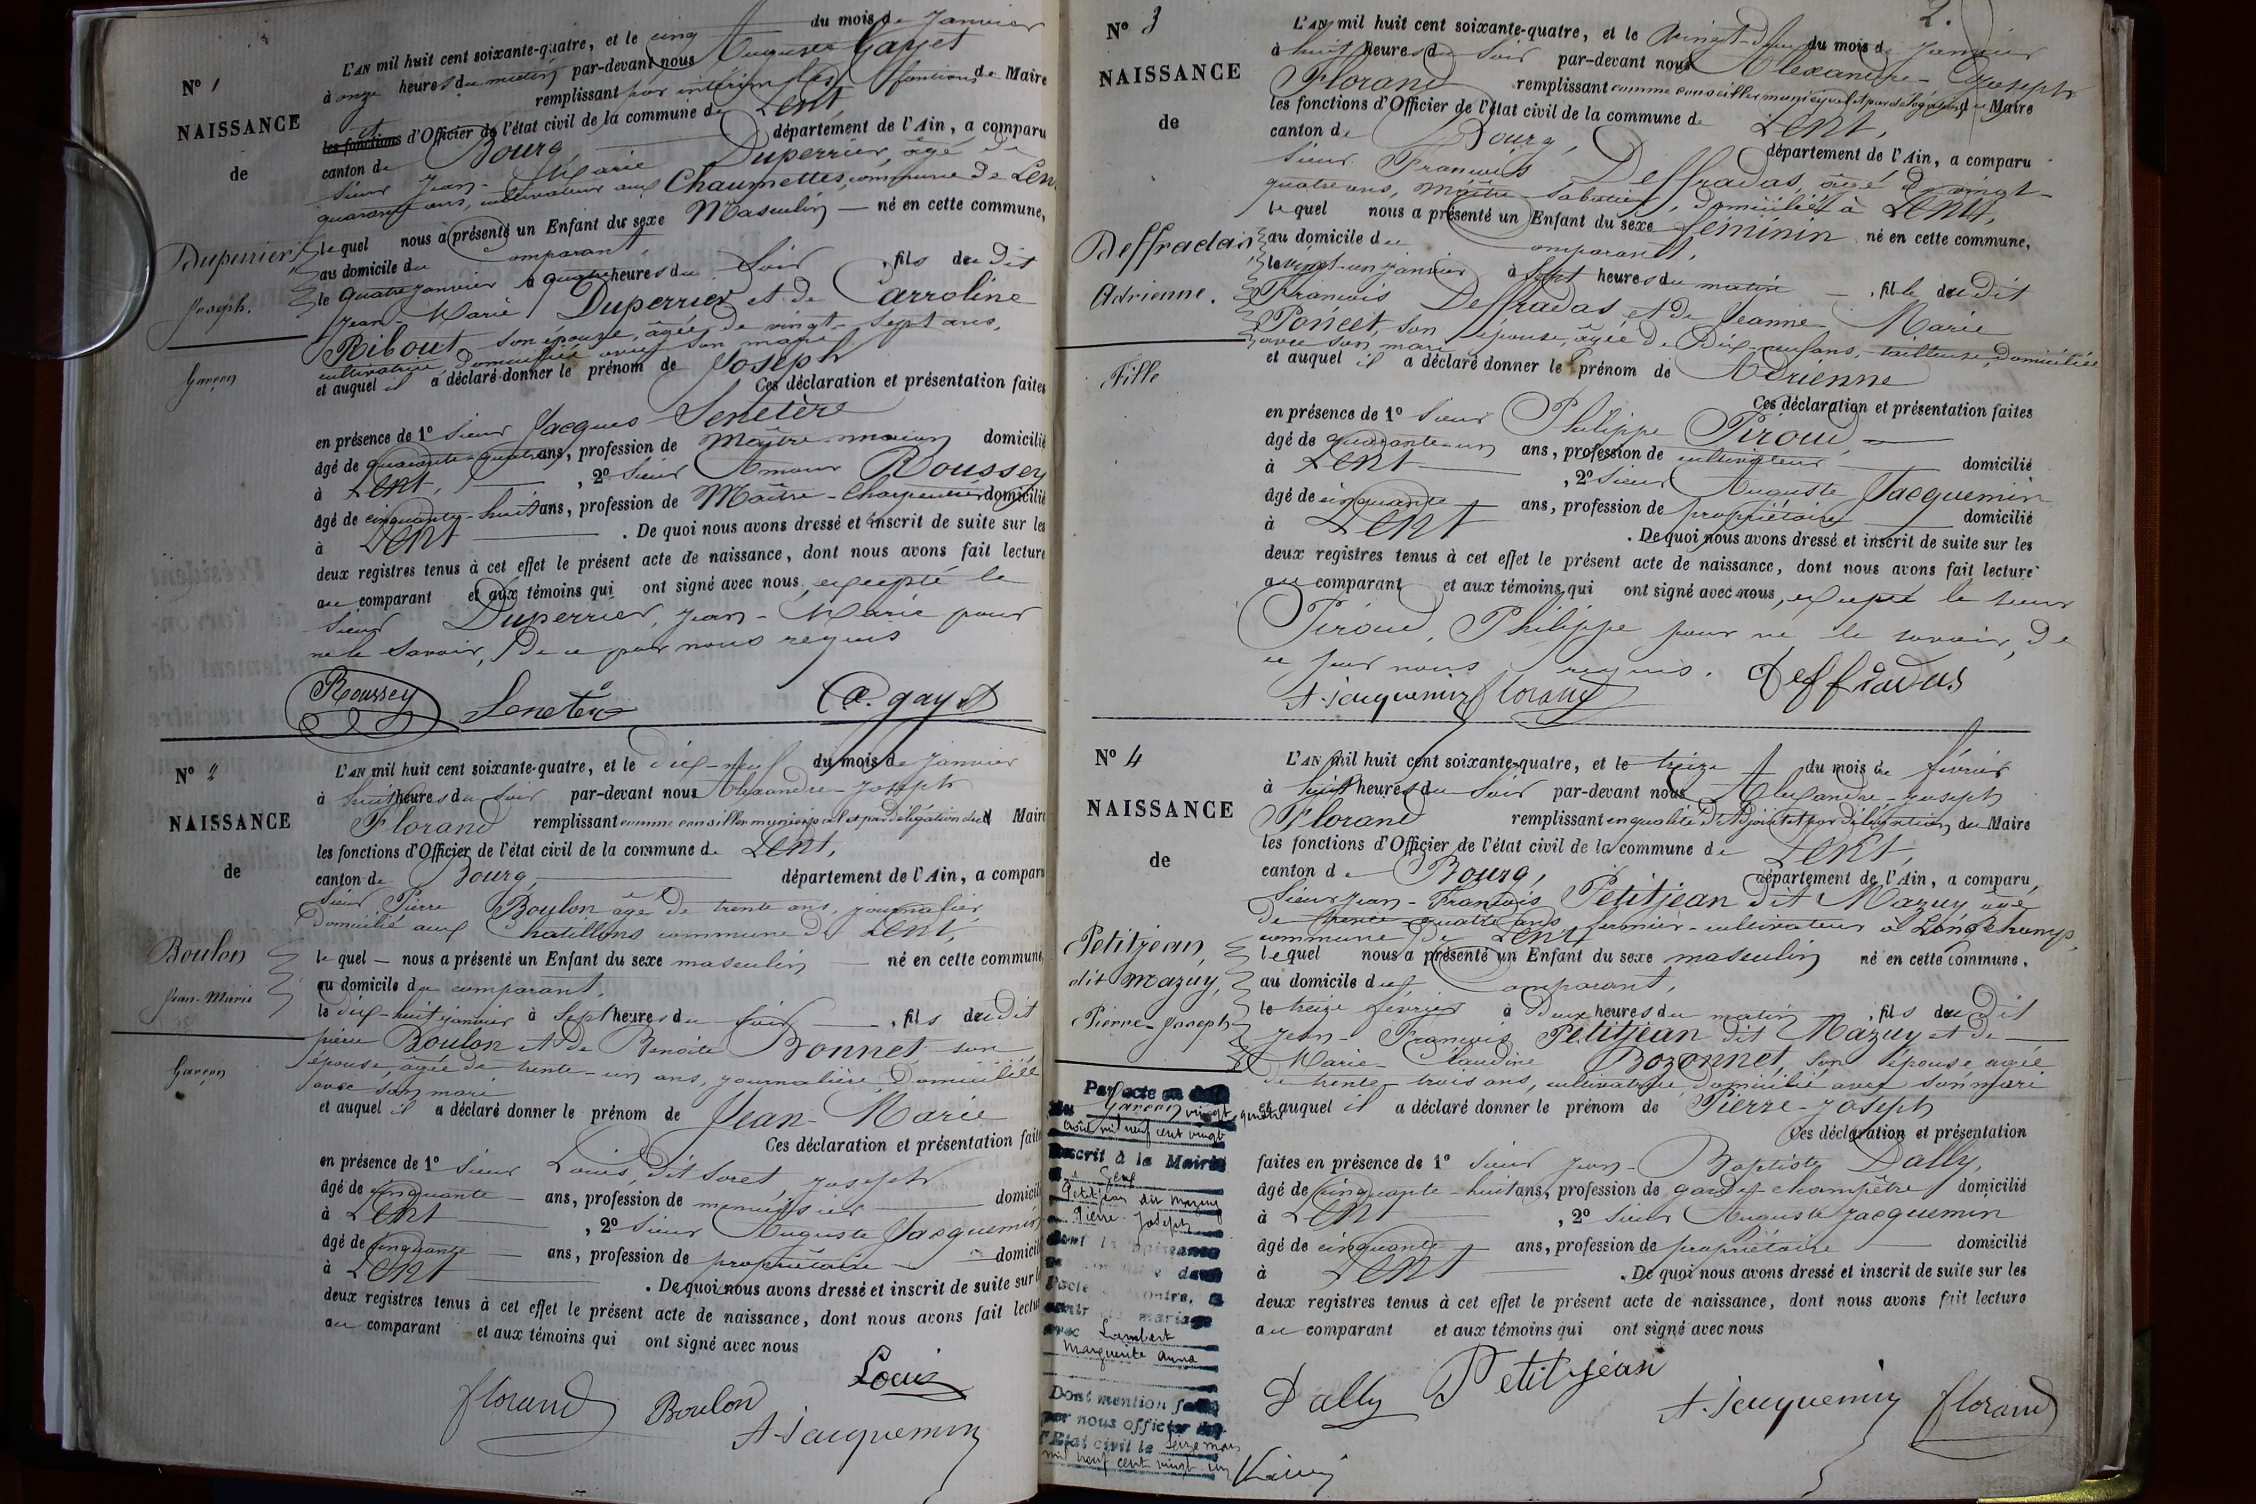 Nº 1
NAISSANCE
de
Duperrier
Joseph.
Garçon
L'AN mil huit cent soixante-quatre, et le cinq du mois de Janvier
à onze heures du matin par-devant nous Auguste Gayet
remplissant par intérim les fonctions de Maire
et les fonctions d'Officier de l'état civil de la commune de Lent
canton de Bourg département de l'Ain, a comparu
sieur Jean-Marie Duperrier, âgé de
quarante ans, cultivateur aux Chaumettes, commune de Lent
lequel nous a présenté un Enfant du sexe Masculin né en cette commune,
au domicile du comparant,
le quatre janvier à quatre heures du soir, fils du dit
Jean Marie Duperrier et de Carroline
Ribout son épouse, âgée de vingt-sept ans,
cultivatrice, domiciliée avec son mari
et auquel il a déclaré donner le prénom de Joseph
Ces déclaration et présentation faites
en présence de 1º sieur Jacques Senetère
âgé de quarante-quatre ans, profession de Maître-maçon domicilié
à Lent, 2º sieur Amour Roussey
âgé de cinquante-huit ans, profession de Maître-Charpentier domicilié
à Lent. De quoi nous avons dressé et inscrit de suite sur les
deux registres tenus à cet effet le présent acte de naissance, dont nous avons fait lecture
au comparant et aux témoins qui ont signé avec nous, excepté le
sieur Duperrier, Jean-Marie pour
ne le savoir, de ce par nous requis
Roussey Senetère A. gayet
Nº 2
NAISSANCE
de
Boulon
Jean-Marie
Garçon
L'AN mil huit cent soixante-quatre, et le dix-neuf du mois de Janvier
à huit heures du soir par-devant nous Alexandre-Joseph
Florand remplissant comme conseiller municipal et par délégation du Maire
les fonctions d'Officier de l'état civil de la commune de Lent,
canton de Bourg, département de l'Ain, a comparu
sieur Pierre Boulon âgé de trente ans, journalier
domicilié aux Chatillons commune de Lent,
lequel nous a présenté un Enfant du sexe masculin né en cette commune,
au domicile du comparant,
le dix-huit janvier à sept heures du soir, fils du dit
pierre Boulon et de Benoite Bonnet son
épouse, âgée de trente-un ans, journalière, domiciliée
avec son mari
et auquel il a déclaré donner le prénom de Jean-Marie
Ces déclaration et présentation faites
en présence de 1º sieur Louis, dit Soret, Joseph
âgé de cinquante ans, profession de menuisier domicilié
à Lent, 2º sieur Auguste Jacquemin
âgé de cinquante ans, profession de propriétaire domicilié
à Lent. De quoi nous avons dressé et inscrit de suite sur les
deux registres tenus à cet effet le présent acte de naissance, dont nous avons fait lecture
au comparant et aux témoins qui ont signé avec nous
florand Boulon Louis
A. Jacquemin
2.
Nº 3
NAISSANCE
de
Deffradas
Adrienne.
Fille
L'AN mil huit cent soixante-quatre, et le vingt-deux du mois de Janvier
à huit heures du soir par-devant nous Alexandre-Joseph
Florand remplissant comme conseiller municipal et par délégation du Maire
les fonctions d'Officier de l'état civil de la commune de Lent,
canton de Bourg, département de l'Ain, a comparu
sieur François Deffradas, âgé de vingt-
quatre ans, maître sabotier, domicilié à Lent,
lequel nous a présenté un Enfant du sexe féminin né en cette commune,
au domicile du comparant,
le vingt-un janvier à sept heures du matin, fille du dit
François Deffradas et de Jeanne-Marie
Poncet, son épouse, âgée de dix-neuf ans, tailleuse, domiciliée
avec son mari
et auquel il a déclaré donner le prénom de Adrienne
Ces déclaration et présentation faites
en présence de 1º sieur Philippe Piroud,
âgé de quarante-un ans, profession de cultivateur domicilié
à Lent, 2º sieur Auguste Jacquemin
âgé de cinquante ans, profession de propriétaire domicilié
à Lent. De quoi nous avons dressé et inscrit de suite sur les
deux registres tenus à cet effet le présent acte de naissance, dont nous avons fait lecture
au comparant et aux témoins qui ont signé avec nous, excepté le sieur
Piroud, Philippe pour ne le savoir, de
ce par nous requis.
A. Jacquemin florand Deffradas
Nº 4
NAISSANCE
de
Petitjean,
dit Mazuy,
Pierre-Joseph
Garçon
L'AN mil huit cent soixante-quatre, et le treize du mois de février
à huit heures du soir par-devant nous Alexandre-Joseph
Florand remplissant en qualité d'Adjoint et par délégation du Maire
les fonctions d'Officier de l'état civil de la commune de Lent,
canton de Bourg, département de l'Ain, a comparu
Sieur Jean-François Petitjean dit Mazuy âgé
de trente-quatre ans, fermier-cultivateur à Longchamp,
commune de Lent
lequel nous a présenté un Enfant du sexe masculin né en cette commune,
au domicile du comparant,
le treize février à deux heures du matin, fils du dit
Jean-François Petitjean dit Mazuy et de
Marie-Claudine Bozonnet, son épouse âgée
de trente-trois ans, cultivatrice domicilié avec son mari
et auquel il a déclaré donner le prénom de Pierre-Joseph
Ces déclaration et présentation
faites en présence de 1º sieur Jean-Baptiste Dally,
âgé de cinquante-huit ans, profession de garde-champêtre domicilié
à Lent, 2º sieur Auguste Jacquemin
âgé de cinquante ans, profession de propriétaire domicilié
à Lent. De quoi nous avons dressé et inscrit de suite sur les
deux registres tenus à cet effet le présent acte de naissance, dont nous avons fait lecture
au comparant et aux témoins qui ont signé avec nous
Dally Petitjean A. Jacquemin florand
Par acte en date
du vingt quatre
août mil neuf cent vingt
inscrit à la Mairie
Petitjean dit Mazuy
Pierre Joseph
dont la naissance
mariage
avec Lambert
Marguerite Anna
Dont mention faite
par nous officier de
l'Etat civil le seize mars
mil neuf cent vingt un